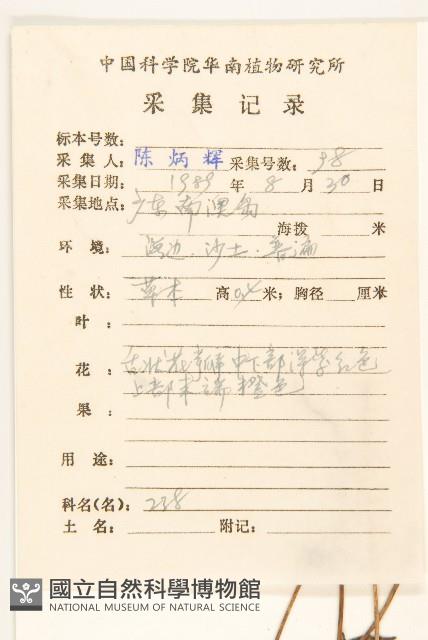 中国科学院华南植物研究所
采集记录
标本号数:
采集人: 陈炳辉 采集号数: 98
采集日期: 1989 年 8 月 30 日
采集地点: 广东南澳岛
海拨 米
环境: 海边.沙土.普遍
性状: 草本 高 0.4 米; 胸径 厘米
叶:
花: 舌状花 中下部洋红色
上部末端橙色
果:
用途:
科名(名): 238
土名: 附记:
國立自然科學博物館
NATIONAL MUSEUM OF NATURAL SCIENCE